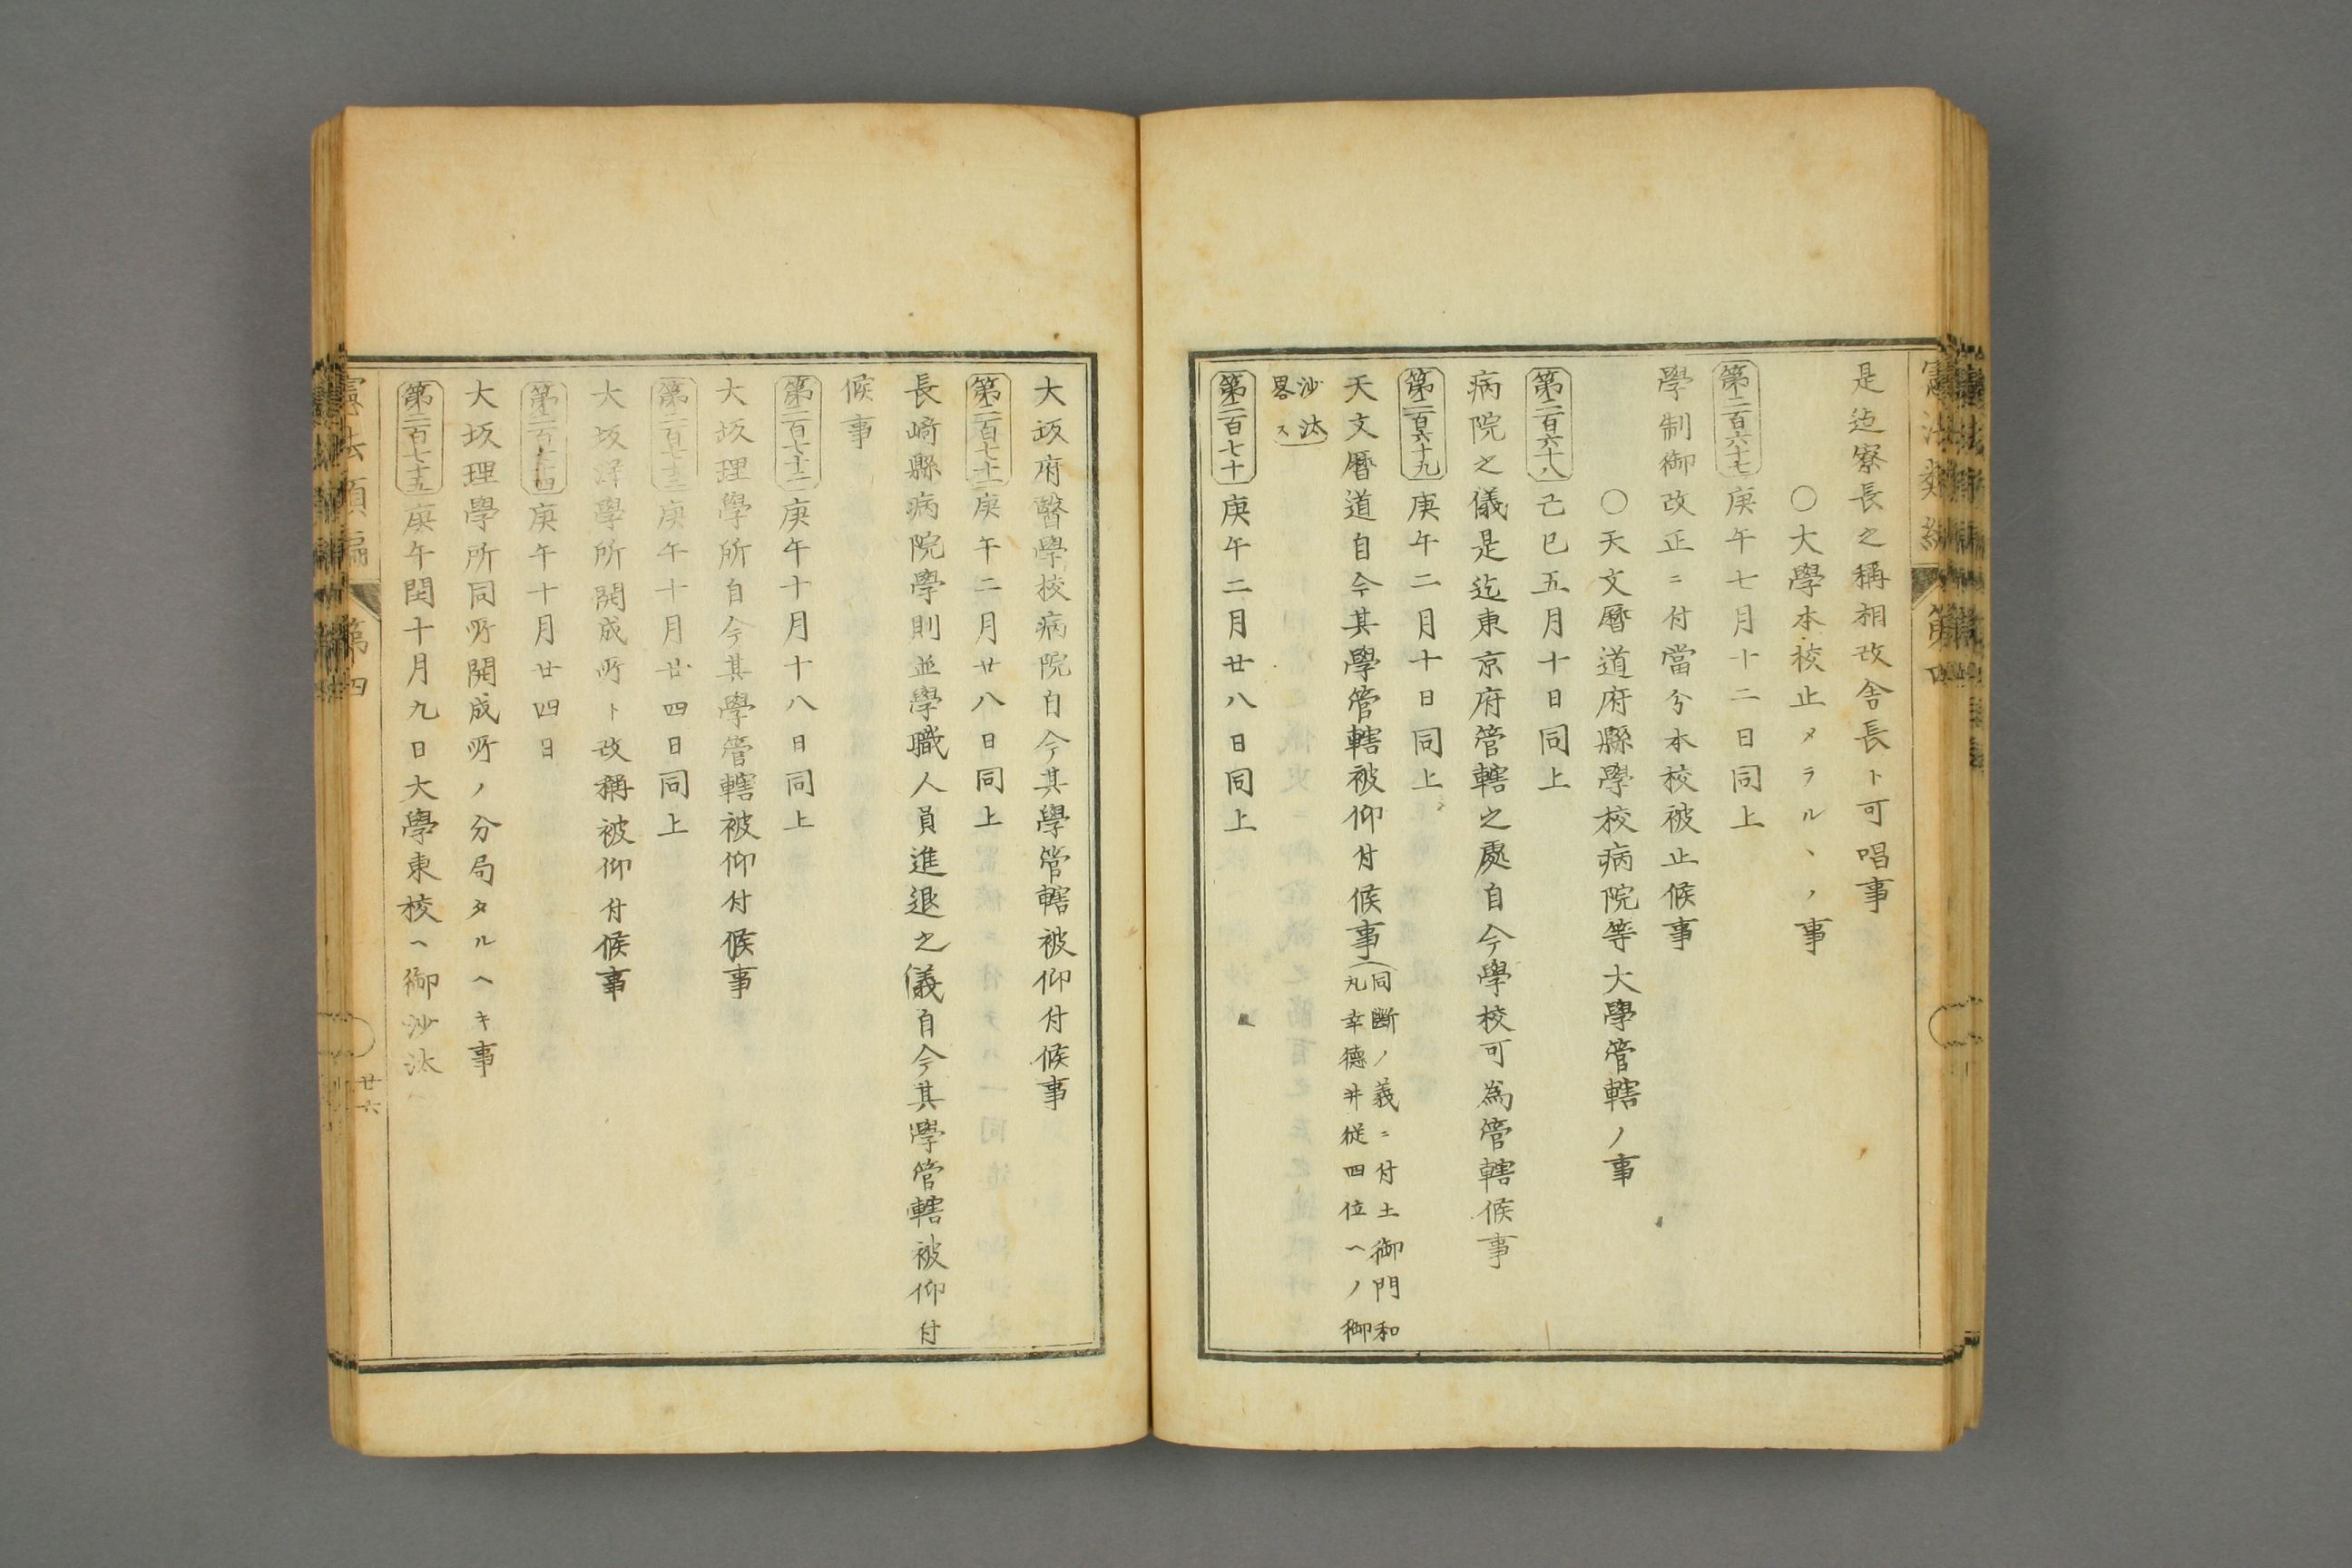 憲法類編 第四
是迄寮長之稱相改舎長ト可唱事
〇大學本校止メラルヽノ事
第二百六十七 庚午七月十二日同上
學制御改正ニ付當分本校被止候事
〇天文暦道府縣學校病院等大學管轄ノ事
第二百六十八 己巳五月十日同上
病院之儀是迄東京府管轄之處自今學校可為管轄候事
第二百六十九 庚午二月十日同上
天文暦道自今其學管轄被仰付候事(同斷ノ義ニ付土御門和
丸幸德并従四位ヘノ御
沙汰
畧ス)
第二百七十 庚午二月廿八日同上
大坂府醫學校病院自今其學管轄被仰付候事
第二百七十一 庚午二月廿八日同上
長﨑縣病院學則並學職人員進退之儀自今其學管轄被仰付
候事
第二百七十二 庚午十月十八日同上
大坂理學所自今其學管轄被仰付候事
第二百七十三 庚午十月廿四日同上
大坂洋學所開成所ト改稱被仰付候事
第二百七十四 庚午十月廿四日
大坂理學所同所開成所ノ分局タルヘキ事
第二百七十五 庚午閏十月九日大學東校ヘ御沙汰
憲法類編 第四
廿六